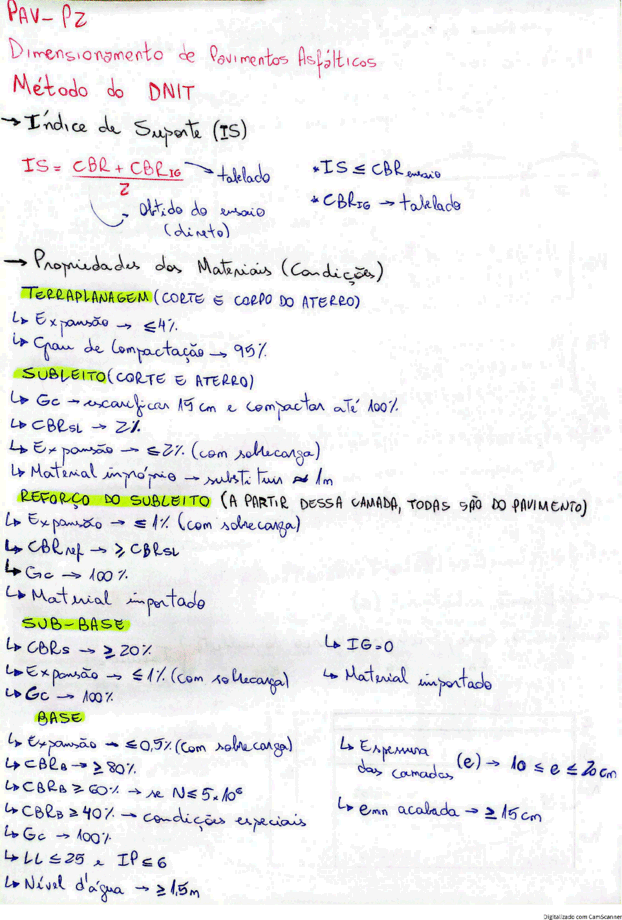 PAV-P2
Dimensionamento de Pavimentos Asfálticos
Método do DNIT
→ Índice de Suporte (IS)
IS = CBR + CBRIG / 2 → tabelado
Obtido do ensaio (direto)
* IS ≤ CBR ensaio
* CBRIG → tabelado
→ Propriedades dos Materiais (Condições)
TERRAPLANAGEM (CORTE E CORPO DO ATERRO)
↳ Expansão → ≤4%
↳ Grau de Compactação → 95%
SUBLEITO (CORTE E ATERRO)
↳ Gc → escarificar 15 cm e compactar até 100%
↳ CBRSL → 2%
↳ Expansão → ≤2% (com sobrecarga)
↳ Material impróprio → substituir ≈ 1m
REFORÇO DO SUBLEITO (A PARTIR DESSA CAMADA, TODAS SÃO DO PAVIMENTO)
↳ Expansão → ≤ 1% (com sobrecarga)
↳ CBRref → ≥ CBRSL
↳ Gc → 100%
↳ Material importado
SUB-BASE
↳ CBRS → ≥ 20%
↳ Expansão → ≤1% (com sobrecarga)
↳ Gc → 100%
↳ IG=0
↳ Material importado
BASE
↳ Expansão → ≤0,5% (com sobrecarga)
↳ CBRB → ≥ 80%
↳ CBRB ≥ 60% → se N≤5×10⁶
↳ CBRB ≥ 40% → condições especiais
↳ Gc → 100%
↳ LL ≤ 25 e IP ≤ 6
↳ Nível d'água → ≥ 1,5m
↳ Espessura das camadas (e) → 10 ≤ e ≤ 20cm
↳ emn acabada → ≥ 15cm
Digitalizado com CamScanner